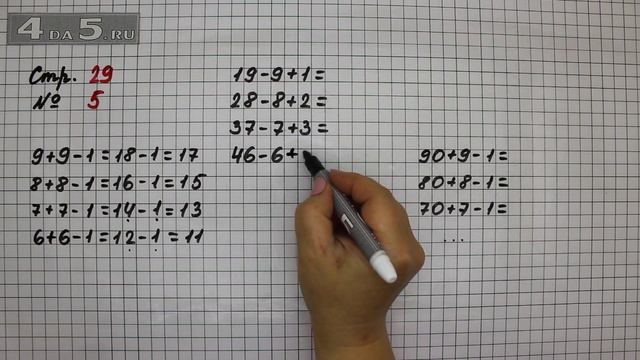 4 DA 5.RU
Стр. 29
№ 5
9+9-1=18-1=17
8+8-1=16-1=15
7+7-1=14-1=13
6+6-1=12-1=11
19-9+1=
28-8+2=
37-7+3=
46-6+
90+9-1=
80+8-1=
70+7-1=
...